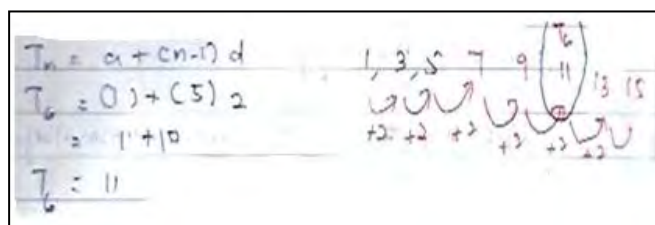 Tn = a + (n-1) d
T6 = (1) + (5) 2
= 1 + 10
T6 = 11
T6
1, 3, 5 7 9 11 13 15
+2 +2 +2 +2 +2 +2